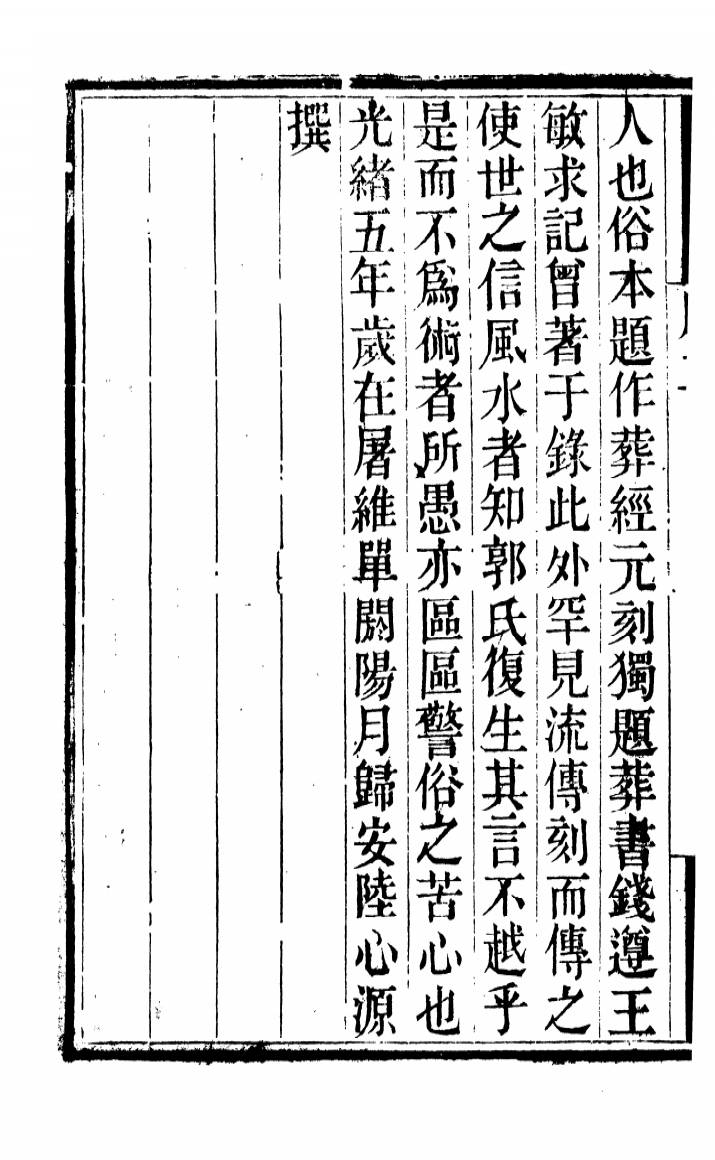 人也俗本題作葬經元刻獨題葬書錢遵王
敏求記曾著于錄此外罕見流傳刻而傳之
使世之信風水者知郭氏復生其言不越乎
是而不爲術者所愚亦區區警俗之苦心也
光緒五年歲在屠維單閼陽月歸安陸心源
撰